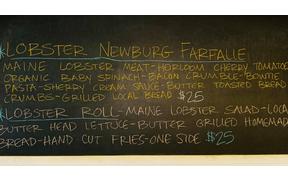 *LOBSTER NEWBURG FARFALLE
MAINE LOBSTER MEAT-HEIRLOOM CHERRY TOMATO
ORGANIC BABY SPINACH-BACON CRUMBLE-BOWTIE
PASTA-SHERRY CREAM SAUCE-BUTTER TOASTED BREAD
CRUMBS-GRILLED LOCAL BREAD $25
*LOBSTER ROLL-MAINE LOBSTER SALAD-LOCA
BUTTER HEAD LETTUCE-BUTTER GRILLED HOMEMAD
BREAD-HAND CUT FRIES-ONE SIDE $25